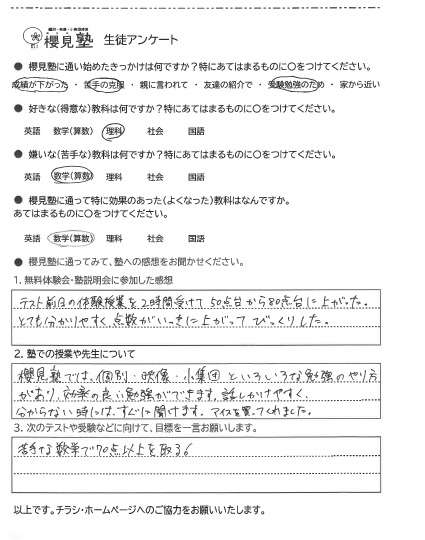 櫻見塾 生徒アンケート
● 櫻見塾に通い始めたきっかけは何ですか？特にあてはまるものに○をつけてください。
成績が下がった ・ 苦手の克服 ・ 親に言われて ・ 友達の紹介で ・ 受験勉強のため ・ 家から近い
● 好きな(得意な)教科は何ですか？特にあてはまるものに○をつけてください。
英語 数学(算数) 理科 社会 国語
● 嫌いな(苦手な)教科は何ですか？特にあてはまるものに○をつけてください。
英語 数学(算数) 理科 社会 国語
● 櫻見塾に通って特に効果のあった(よくなった)教科はなんですか。
あてはまるものに○をつけてください。
英語 数学(算数) 理科 社会 国語
● 櫻見塾に通ってみて、塾への感想をお聞かせください。
1. 無料体験会・塾説明会に参加した感想
テスト前日の体験授業を2時間受けて50点台から80点台に上がった。
とても分かりやすく、点数がいっきに上がってびっくりした。
2. 塾での授業や先生について
櫻見塾では、個別・映像・小集団といろいろな勉強のやり方
があり、効率の良い勉強ができます。話しかけやすく、
分からない時には、すぐに聞けます。アイスを買ってくれました。
3. 次のテストや受験などに向けて、目標を一言お願いします。
苦手な数学で70点以上を取る
以上です。チラシ・ホームページへのご協力をお願いいたします。